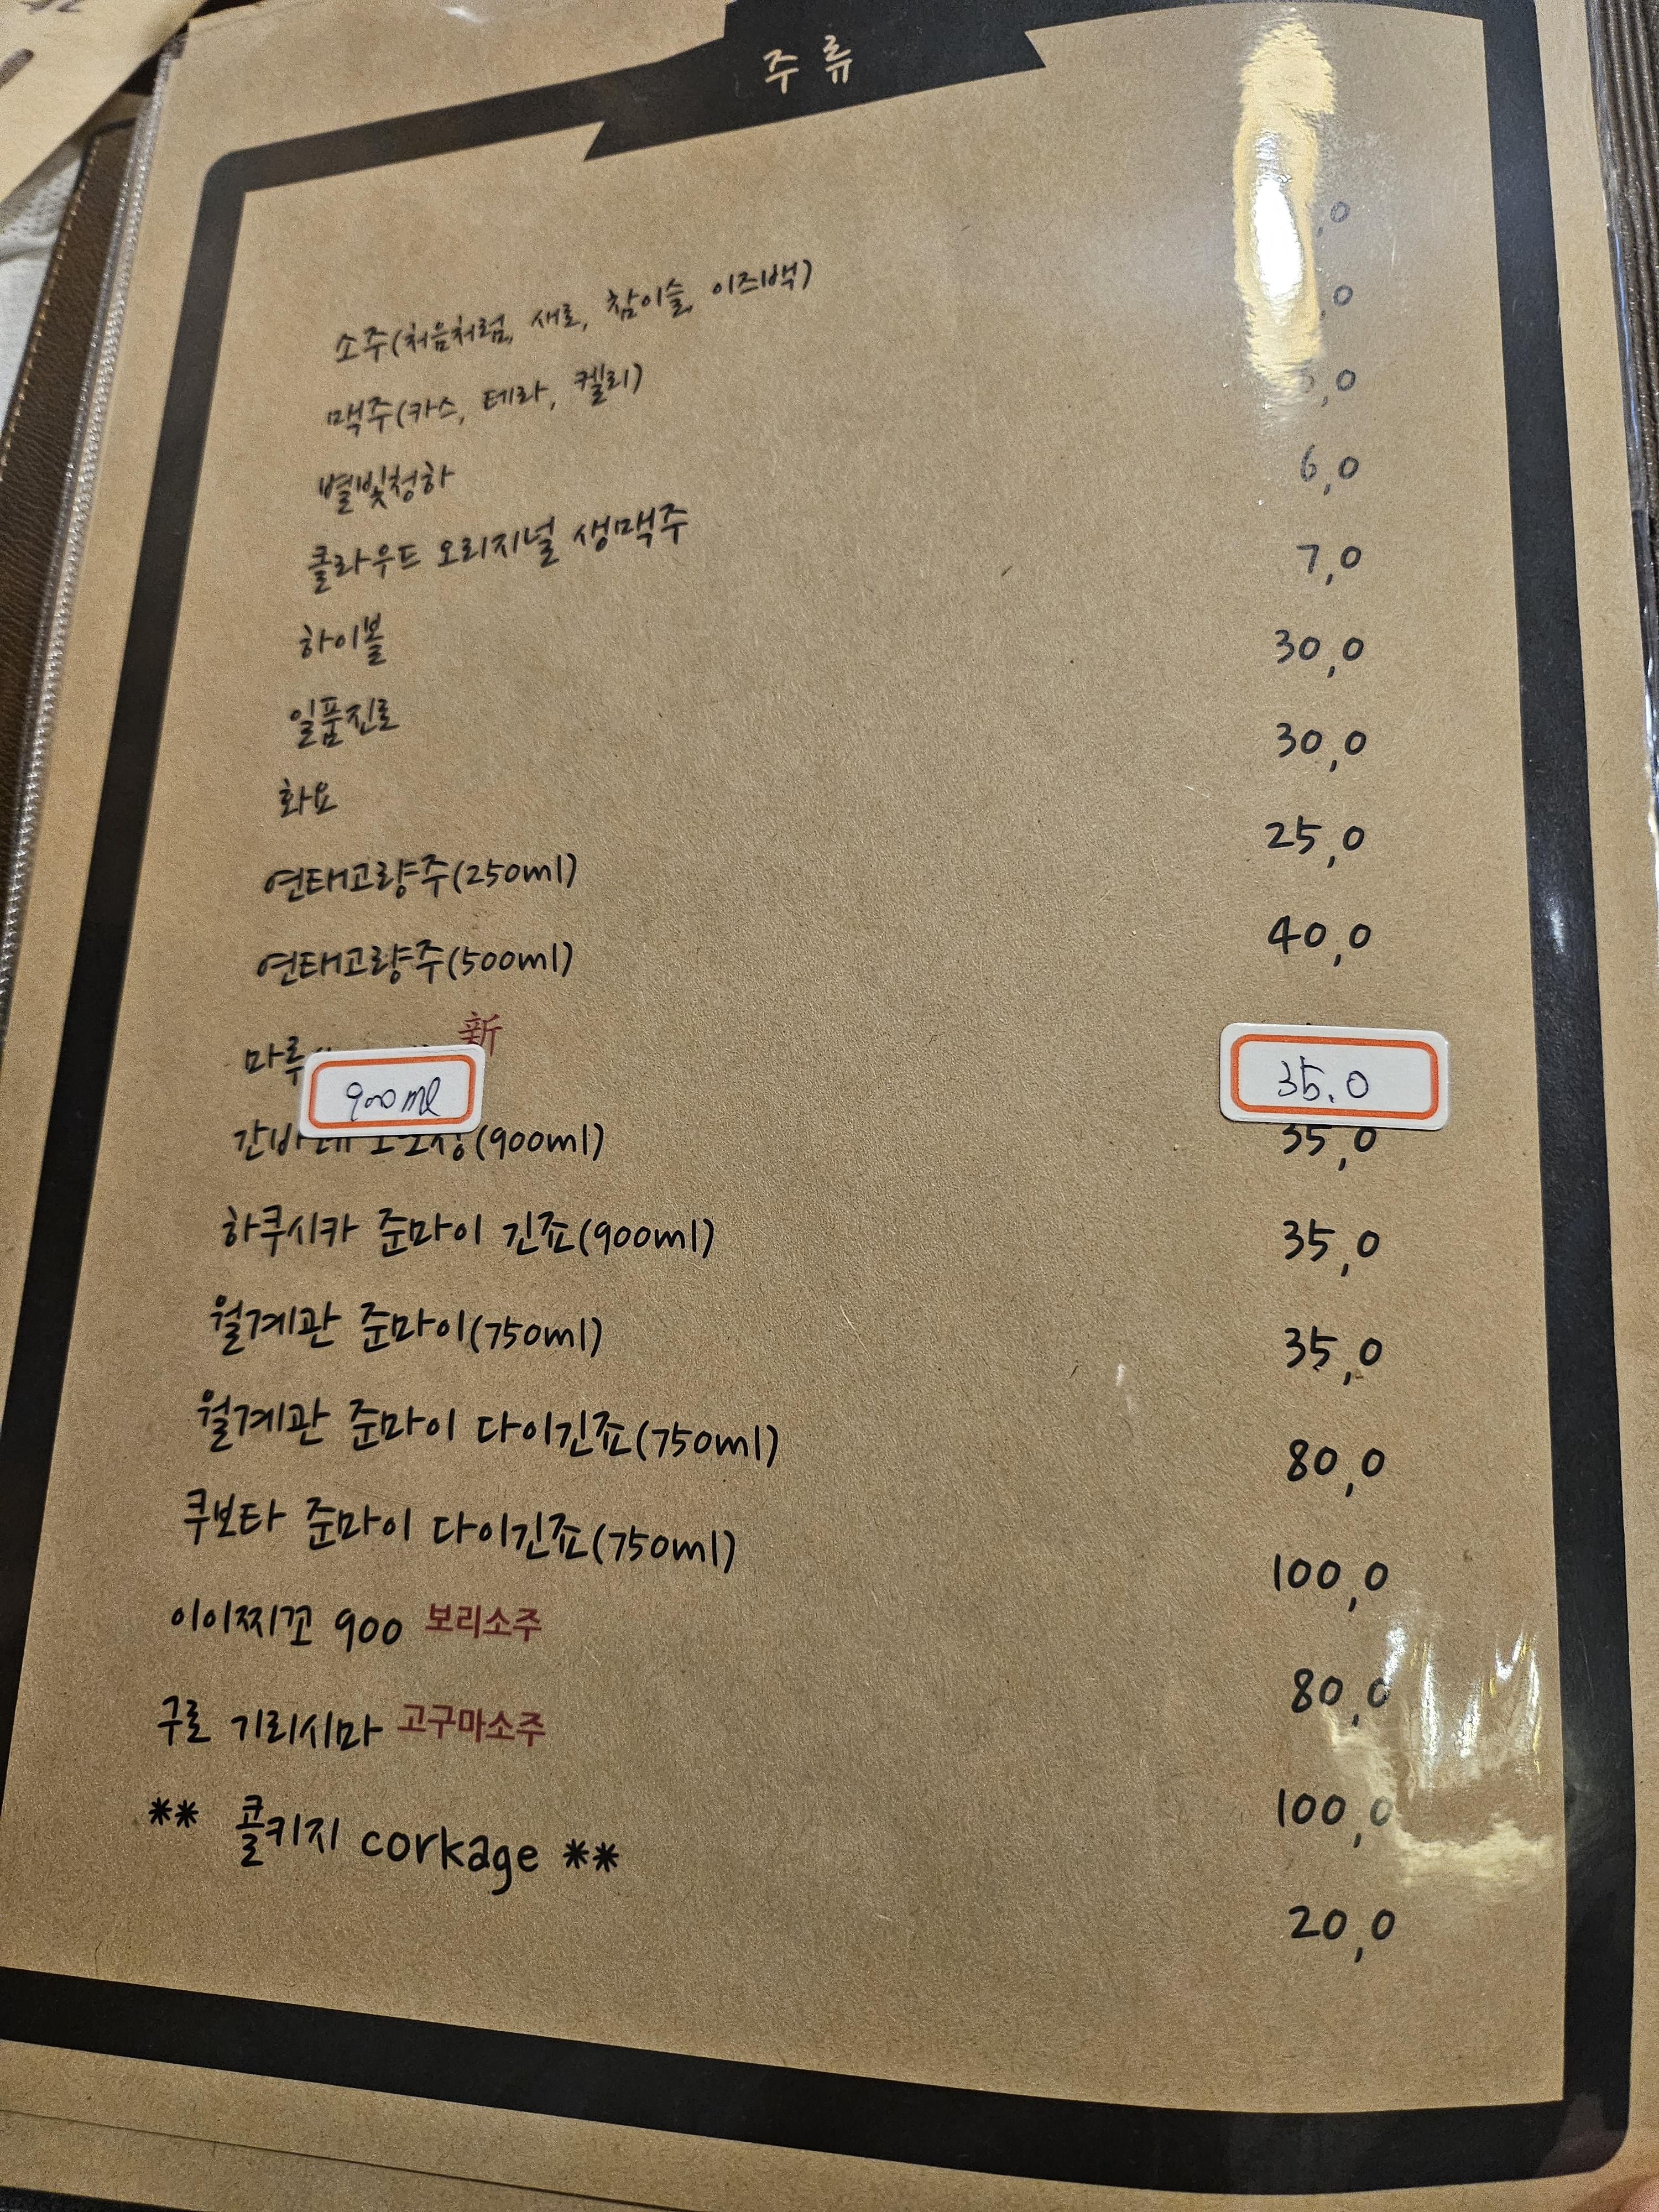 주류
소주(처음처럼, 새로, 참이슬, 이즈백) ,0
맥주(카스, 테라, 켈리) ,0
별빛청하 ,0
클라우드 오리지널 생맥주 6,0
하이볼 7,0
일품진로 30,0
화요 30,0
연태고량주(250ml) 25,0
연태고량주(500ml) 40,0
마루 900ml 新 35.0
(900ml) 35,0
하쿠시카 준마이 긴죠(900ml) 35,0
월계관 준마이(750ml) 35,0
월계관 준마이 다이긴죠(750ml) 80,0
쿠보타 준마이 다이긴죠(750ml) 100,0
이이찌꼬 900 보리소주 80,0
구로 기리시마 고구마소주 100,0
** 콜키지 corkage ** 20,0